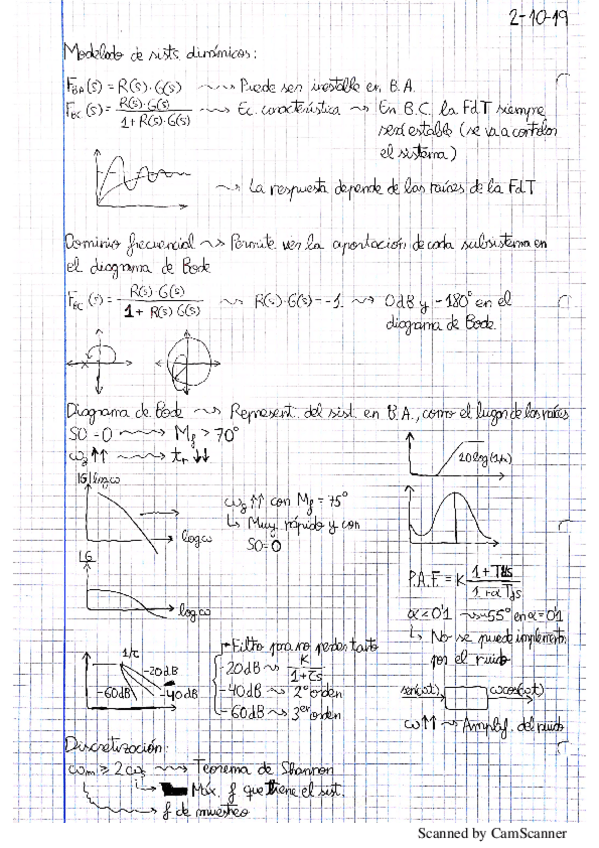 2-10-19
Modelado de sists. dinámicos:
F_BA(s) = R(s)·G(s) ⟿ Puede ser inestable en B.A.
F_BC(s) = R(s)·G(s) / 1+R(s)·G(s) ⟿ Ec. característica ⟿ En B.C. la FdT siempre
será estable (se va a controlar
el sistema)
⟿ La respuesta depende de las raíces de la FdT
Dominio frecuencial ⟿ Permite ver la aportación de cada subsistema en
el diagrama de Bode
F_BC(s) = R(s)·G(s) / 1+R(s)G(s) ⟿ R(s)·G(s)=-1 ⟿ 0dB y -180° en el
diagrama de Bode.
Diagrama de Bode ⟿ Represent. del sist. en B.A., como el lugar de las raíces
SO=0 ⟿ M_f > 70°
ω_g ↑↑ ⟿ t_r ↓↓
20log(1/α)
|G| log ω
log ω
ω_g ↑↑ con M_f = 75°
↳ Muy rápido y con
SO=0
LG
log ω
P.A.F. = K 1+T_ds / 1+αT_ds
α<0'1 ⟿ ~55° en α=0'1
↳ No se puede implement.
por el ruido
1/τ
-20dB
-40dB
-60dB
Filtro para no perder tanto
-20dB ⟿ K / 1+τs
-40dB ⟿ 2º orden
-60dB ⟿ 3er orden
sen(ωt) ωcos(ωt)
ω↑↑ ⟿ Amplif. del ruido
Discretización:
ω_m ≥ 2ω_s ⟿ Teorema de Shannon
Máx. f que tiene el sist.
f de muestreo
Scanned by CamScanner